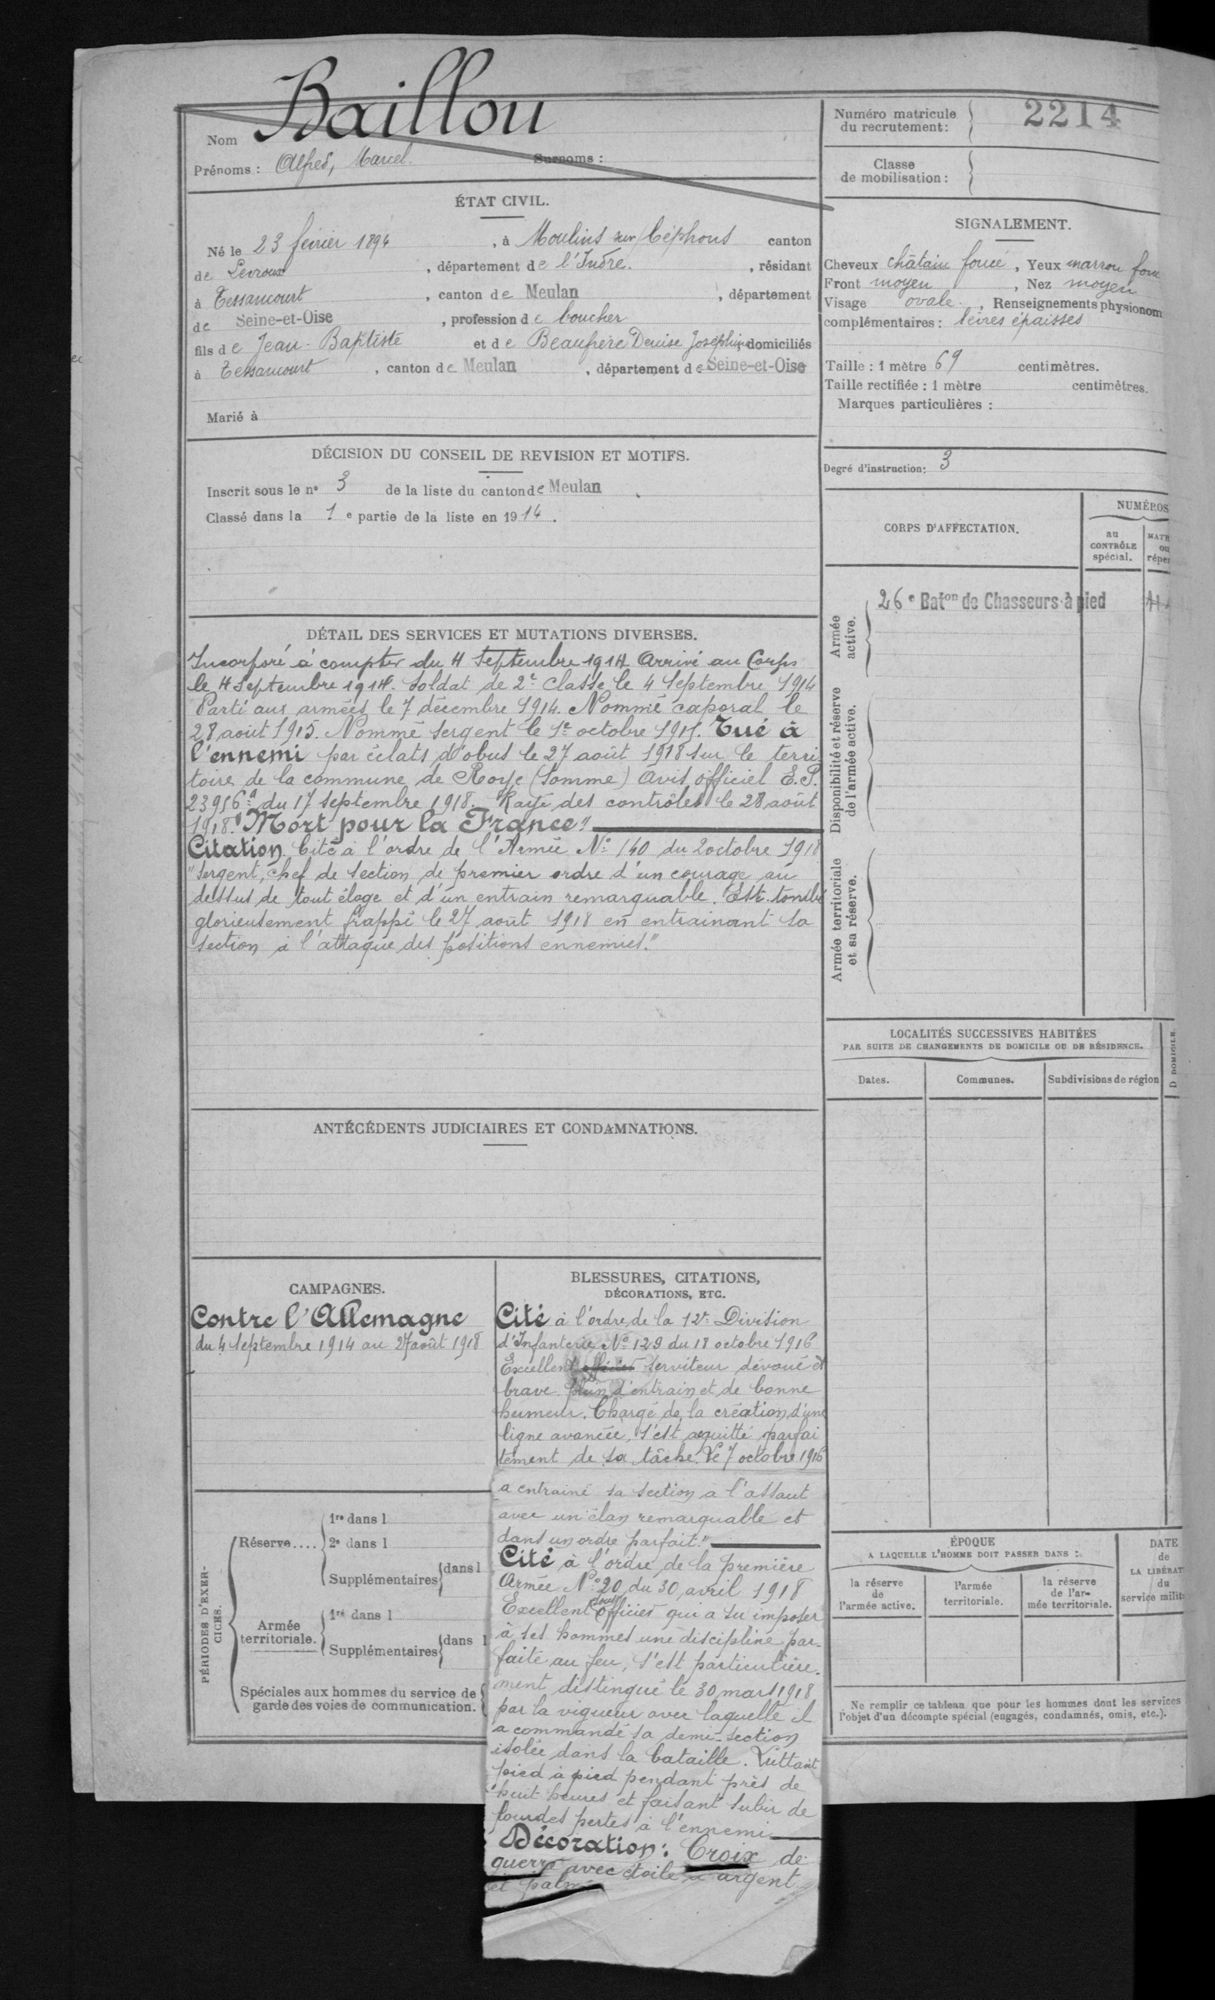 Nom Baillou
Prénoms : Alfred, Marcel. Surnoms :
Numéro matricule
du recrutement : 2214
Classe
de mobilisation :
ÉTAT CIVIL.
Né le 23 février 1894, à Moulins sur Céphons canton
de Levroux, département de l'Indre., résidant
à Tessancourt, canton de Meulan, département
de Seine-et-Oise, profession de boucher
fils de Jean-Baptiste et de Beaufrere Denise Joséphine domiciliés
à Tessancourt, canton de Meulan, département de Seine-et-Oise
Marié à
SIGNALEMENT.
Cheveux châtain foncé, Yeux marron fonc
Front moyen, Nez moyen
Visage ovale., Renseignements physionom
complémentaires : lèvres épaisses
Taille : 1 mètre 69 centimètres.
Taille rectifiée : 1 mètre centimètres.
Marques particulières :
Degré d'instruction : 3
DÉCISION DU CONSEIL DE REVISION ET MOTIFS.
Inscrit sous le nº 3 de la liste du canton de Meulan.
Classé dans la 1e partie de la liste en 1914.
CORPS D'AFFECTATION.
NUMÉROS
au
CONTRÔLE
spécial.
MATR
ou
réper
26e Baton de Chasseurs à pied
Armée
active.
Disponibilité et réserve
de l'armée active.
Armée territoriale
et sa réserve.
DÉTAIL DES SERVICES ET MUTATIONS DIVERSES.
Incorporé à compter du 4 Septembre 1914 Arrivé au Corps
le 4 Septembre 1914. Soldat de 2e Classe le 4 Septembre 1914
Parti aux armées le 7 décembre 1914. Nommé caporal le
28 août 1915. Nommé sergent le 1er octobre 1915. Tué à
l'ennemi par éclats d'obus le 27 août 1918 sur le terri
toire de la commune de Roye (Somme) Avis officiel E.P.
23956a du 17 septembre 1918. Rayé des contrôles le 28 août
1918. "Mort pour la France"
Citation Cité à l'ordre de l'Armée Nº 140 du 2 octobre 1918
"Sergent, chef de section de premier ordre d'un courage au
dessus de tout éloge et d'un entrain remarquable. Est tombé
glorieusement frappé le 27 août 1918 en entrainant sa
section à l'attaque des positions ennemies."
LOCALITÉS SUCCESSIVES HABITÉES
PAR SUITE DE CHANGEMENTS DE DOMICILE OU DE RÉSIDENCE.
Dates. Communes. Subdivisions de région
D DOMICILE.
ANTÉCÉDENTS JUDICIAIRES ET CONDAMNATIONS.
CAMPAGNES.
Contre l'Allemagne
du 4 Septembre 1914 au 27 août 1918
BLESSURES, CITATIONS,
DÉCORATIONS, ETC.
Cité à l'ordre de la 12e Division
d'Infanterie Nº 129 du 18 octobre 1916
Excellent officier serviteur dévoué et
brave plein d'entrain et de bonne
humeur. Chargé de la création d'une
ligne avancée, s'est acquitté parfai
tement de sa tâche. Le 7 octobre 1916
a entrainé sa section à l'assaut
avec un élan remarquable et
dans un ordre parfait."
Cité à l'ordre de la première
Armée Nº 20 du 30 avril 1918
Excellent sous officier qui a su imposer
à ses hommes une discipline par-
faite au feu, s'est particulière-
ment distingué le 30 mars 1918
par la vigueur avec laquelle il
a commandé sa demi-section
isolée dans la bataille. Luttant
pied à pied pendant près de
huit heures et faisant subir de
lourdes pertes à l'ennemi
Décoration : Croix de
guerre avec étoile d'argent
et palme
PÉRIODES D'EXER-
CICES.
Réserve.... 1re dans l
2e dans l
Supplémentaires dans l
Armée
territoriale. 1re dans l
Supplémentaires dans l
Spéciales aux hommes du service de
garde des voies de communication.
ÉPOQUE
A LAQUELLE L'HOMME DOIT PASSER DANS :
la réserve
de
l'armée active.
l'armée
territoriale.
la réserve
de l'ar-
mée territoriale.
DATE
de
LA LIBÉRAT
du
service milit
Ne remplir ce tableau que pour les hommes dont les services
l'objet d'un décompte spécial (engagés, condamnés, omis, etc.).